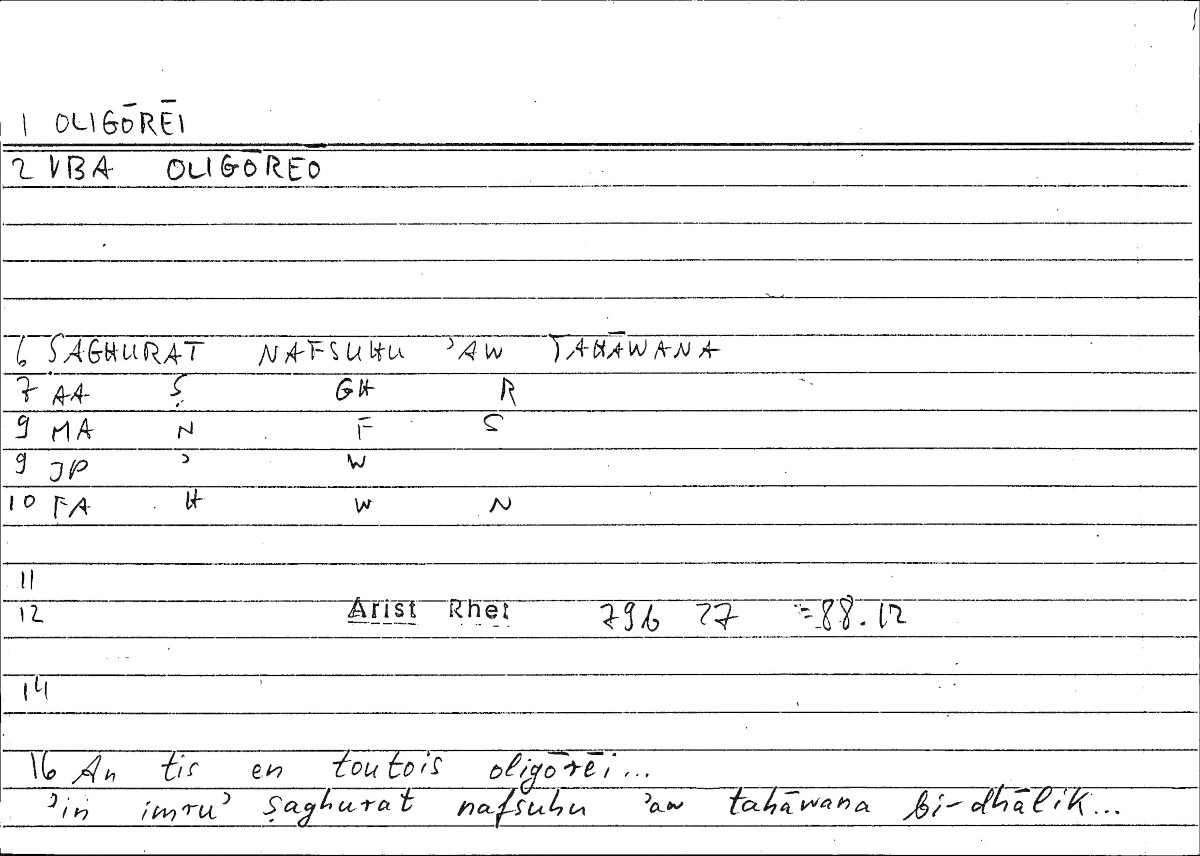 1 OLIGŌRĒI
2 VBA OLIGŌREŌ
6 ṢAGHURAT NAFSUHU ʾAW TAHĀWANA
7 AA Ṣ GH R
9 MA N F S
9 JP ʾ W
10 FA H W N
11
12 Arist Rhet 79b 27 =88.12
14
16 An tis en toutois oligōrēi...
ʾin imruʾ ṣaghurat nafsuhu ʾaw tahāwana bi-dhālik...